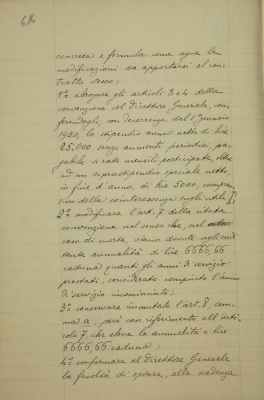 concreta e formula come segue le
modificazioni da apportarsi al con-
tratto stesso:
1° abrogare gli articoli 3 e 4 della
convenzione col Direttore Generale, con
ferendogli, con decorrenza del 1° Gennaio
1920, lo stipendio annuo netto di lire
25.000 senza aumenti periodici, pa-
gabile a rate mensili posticipate, oltre
ad un soprastipendio speciale netto,
in fine d'anno, di lire 5000 compren
sivo della cointeressenza sugli utili;
2° modificare l'art. 7 della citata
convenzione nel senso che, nel
caso di morte, siano dovute
annualità di lire 6666,66
caduna quanti gli anni di servizio
prestati, considerato compiuto l'anno
di servizio incominciato;
3° conservare immutato l'art. 8, com-
ma a, però con riferimento all'arti-
colo 7, che eleva le annualità a lire
6666,66 caduna;
4° confermare al Direttore Generale
la facoltà di optare, alla scadenza